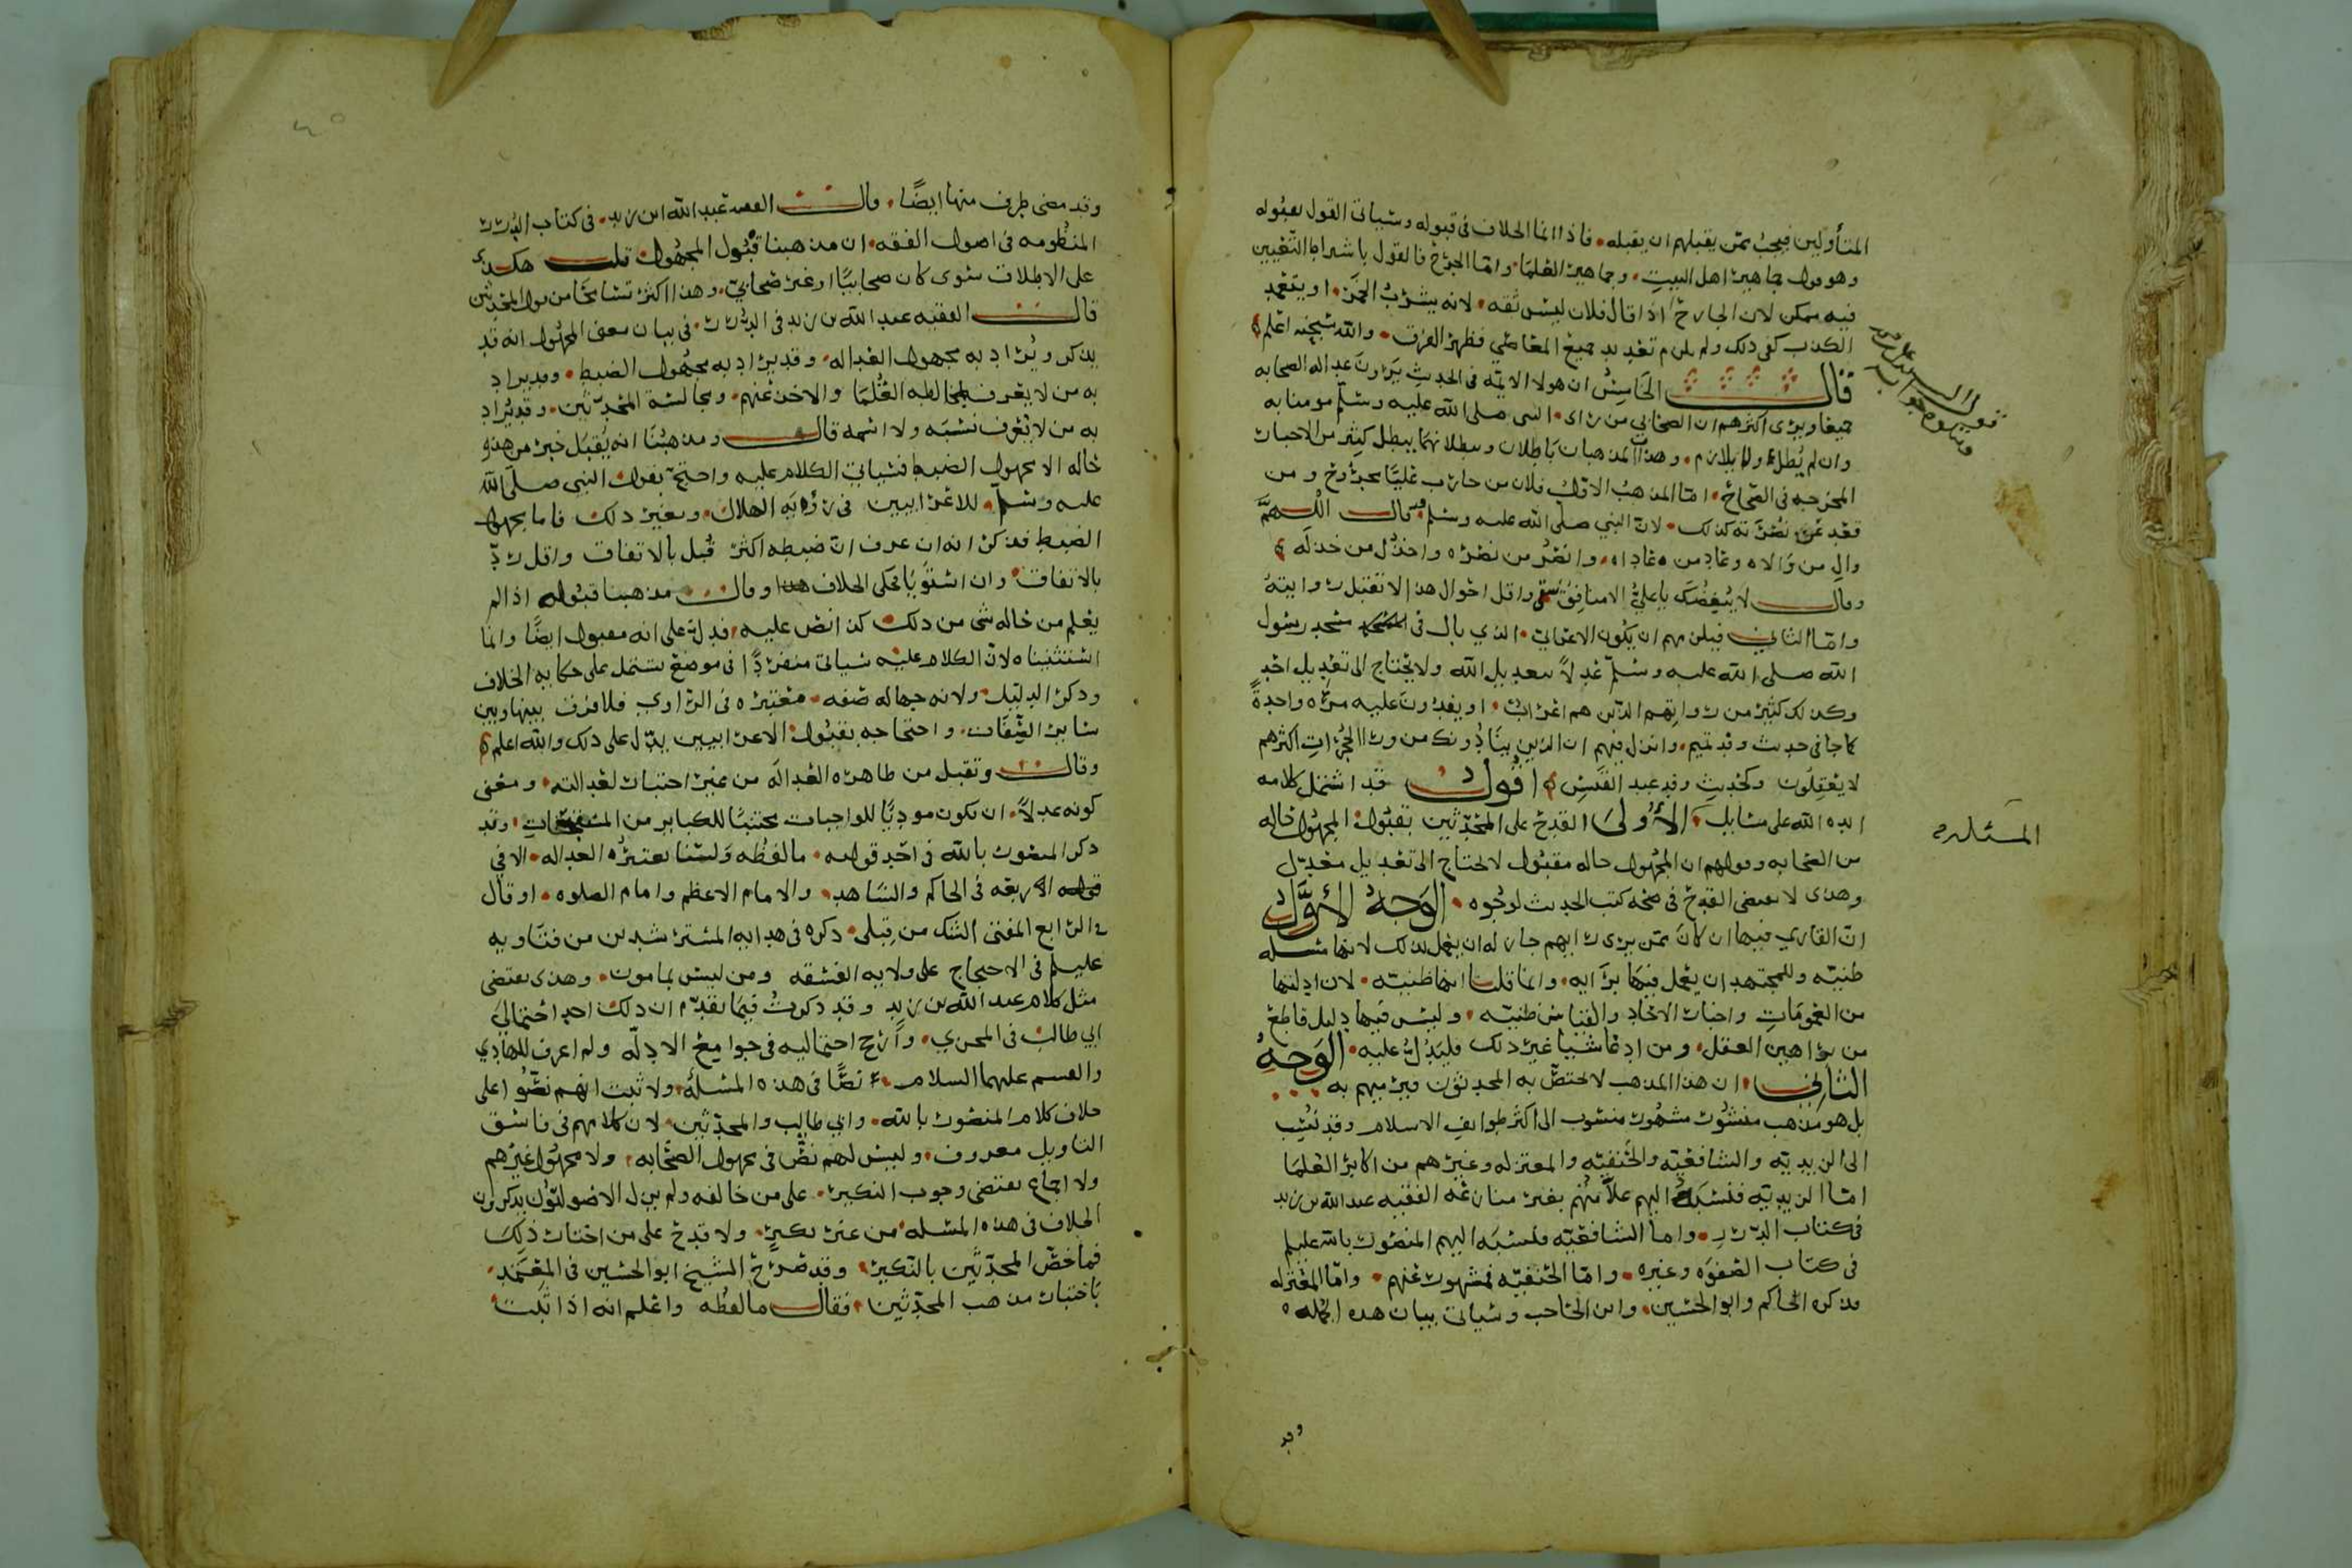 المتأولين فيجب ممن يقبلهم ان يقبله فاذا انما الخلاف في قبوله وسياتي القول بقبوله
وهو قول جماهير اهل البيت وجماهير العلما واما الجرح فالقول باشتراط التعيين
فيه ممكن لان الجارح اذا قال فلان ليس ثقه لانه يشرب الخمر او يتعمد
الكذب كفى ذلك ولم يلزم تعديد جميع المعاصي فظهر الفرق والله سبحنه اعلم
قال الخامس ان هولا الايمه في الحديث يرون عداله الصحابه
جميعا ويرى اكثرهم ان الصحابي من راى النبي صلى الله عليه وسلم مومنا به
وان لم يطل ولم يلازم وهذان المذهبان باطلان وببطلانهما يبطل كثير من الاخبار
المخرجه في الصحاح اما المذهب الاول فلان من حارب عليا مجروح ومن
قعد عن نصرته كذلك لان النبي صلى الله عليه وسلم قال اللهم
وال من والاه وعاد من عاداه وانصر من نصره واخذل من خذله
وقال لا يبغضك يا علي الا منافق شقي واقل احوال هذا الا تقبل روايته
واما الثاني فيلزمهم ان يكون الاعرابي الذي بال في مسجد رسول
الله صلى الله عليه وسلم عدلا بتعديل الله ولا يحتاج الى تعديل احد
وكذلك كثير من رواتهم الذين هم اعراب او يفدون عليه مره واحدة
كما جا في حديث وفد تميم وانزل فيهم ان الذين ينادونك من ورا الحجرات اكثرهم
لا يعقلون وكحديث وفد عبد القيس اقول قد اشتمل كلامه
المسئله
ايده الله على مسايل الاولى القدح على المحدثين بقبول المجهول حاله
من الصحابه وقولهم ان المجهول حاله مقبول لا يحتاج الى تعديل معدل
وهذى لا يقتضي القدح في صحه كتب الحديث لوجوه الوجه الاول
ان القاري فيها ان كان ممن يرى رايهم جاز له ان يعمل بذلك لانها مسله
ظنيه وللمجتهد ان يعمل فيها برايه وانما قلنا انها ظنيه لان ادلتها
من العمومات واخبار الاحاد والقياس ظنيه وليس فيها دليل قاطع
من براهين العقل ومن ادعا شيا غير ذلك فليدل عليه الوجه
الثاني ان هذا المذهب لا يختص به المحدثون فيرميهم به
بل هو مذهب منشور مشهور منسوب الى اكثر طوايف الاسلام وقد نسب
الى الزيديه والشافعيه والحنفيه والمعتزله وغيرهم من اكابر العلما
اما الزيديه فنسبه اليهم علامتهم بغير منازعه الفقيه عبد الله بن زيد
في كتاب الدرر واما الشافعيه فنسبه اليهم المنصور بالله عليلم
في كتاب الصفوه وغيره واما الحنفيه فمشهور عنهم واما المعتزله
فذكره الحاكم وابو الحسين وابن الحاجب وسياتي بيان هذه الجمله
وقد
وقد مضى طرف منها ايضا قال الفقيه عبد الله ابن زيد في كتاب الدرر
المنظومه في اصول الفقه ان مذهبنا قبول المجهول قلت هكذى
على الاطلاق سوى كان صحابيا او غير صحابي وهذا اكثر تسامحا من قول المحدثين
قال الفقيه عبد الله بن زيد في الدرر في بيان معنى المجهول انه قد
يذكر ويراد به مجهول العداله وقد يراد به مجهول الضبط وقد يراد
به من لا يعرف بمخالطه العلما والاخذ عنهم ومجالسة المحدثين وقد يراد
به من لا يعرف نسبه ولا اسمه قال ومذهبنا انه يقبل خبر من هذه
حاله الا مجهول الضبط فسياتي الكلام عليه واحتج بقول النبي صلى الله
عليه وسلم للاعرابيين في رؤية الهلال وبغير ذلك فاما مجهول
الضبط فذكر انه ان عرف ان ضبطه اكثر قبل بالاتفاق واقل رد
بالاتفاق وان استويا فحكى الخلاف هذا وقال مذهبنا قبوله اذا لم
يعلم من حاله شي من ذلك كذا نص عليه فدل على انه مقبول ايضا وانما
استثنيناه لان الكلام عليه سياتي منفردا في موضع يشتمل على حكايه الخلاف
وذكر الدليل ولانه جهاله صفه معتبره في الراوي فلا فرق بينها وبين
ساير الصفات واحتجاجه بقبول الاعرابيين يدل على ذلك والله اعلم
وقال وتقبل من ظاهره العداله من غير اختبار لعدالته ومعنى
كونه عدلا ان يكون موديا للواجبات مجتنبا للكباير من المستقبحات وقد
ذكر المنصور بالله في احد قوليه ما لفظه ولسنا نعتبر العداله الا في
الاربعه في الحاكم والشاهد والامام الاعظم وامام الصلوه او قال
والرابع المفتي الشك من قبلي ذكره في هدايه المسترشدين من فتاويه
عليلم في الاحتجاج على ولايه الفسقه ومن ليس بمامون وهذى يقتضي
مثل كلام عبد الله بن زيد وقد ذكرت فيما تقدم ان ذلك احد احتمالي
ابي طالب في المجزي وارجح احتماليه في جوامع الادله ولم اعرف للهادي
والقسم عليهما السلام نصا في هذه المسئله ولا ثبت انهم نصوا على
خلاف كلام المنصور بالله وابي طالب والمحدثين لان كلامهم في فاسق
التاويل معروف وليس لهم نص في مجهول الصحابه ولا مجهول غيرهم
ولا اجماع يقتضي وجوب النكير على من خالفه ولم يزل الاصوليون يذكرون
الخلاف في هذه المسله من غير نكير ولا قدح على من اختار ذلك
فما خص المحدثين بالنكير وقد صرح الشيخ ابو الحسين في المعتمد
باختيار مذهب المحدثين فقال ما لفظه واعلم انه اذا ثبت